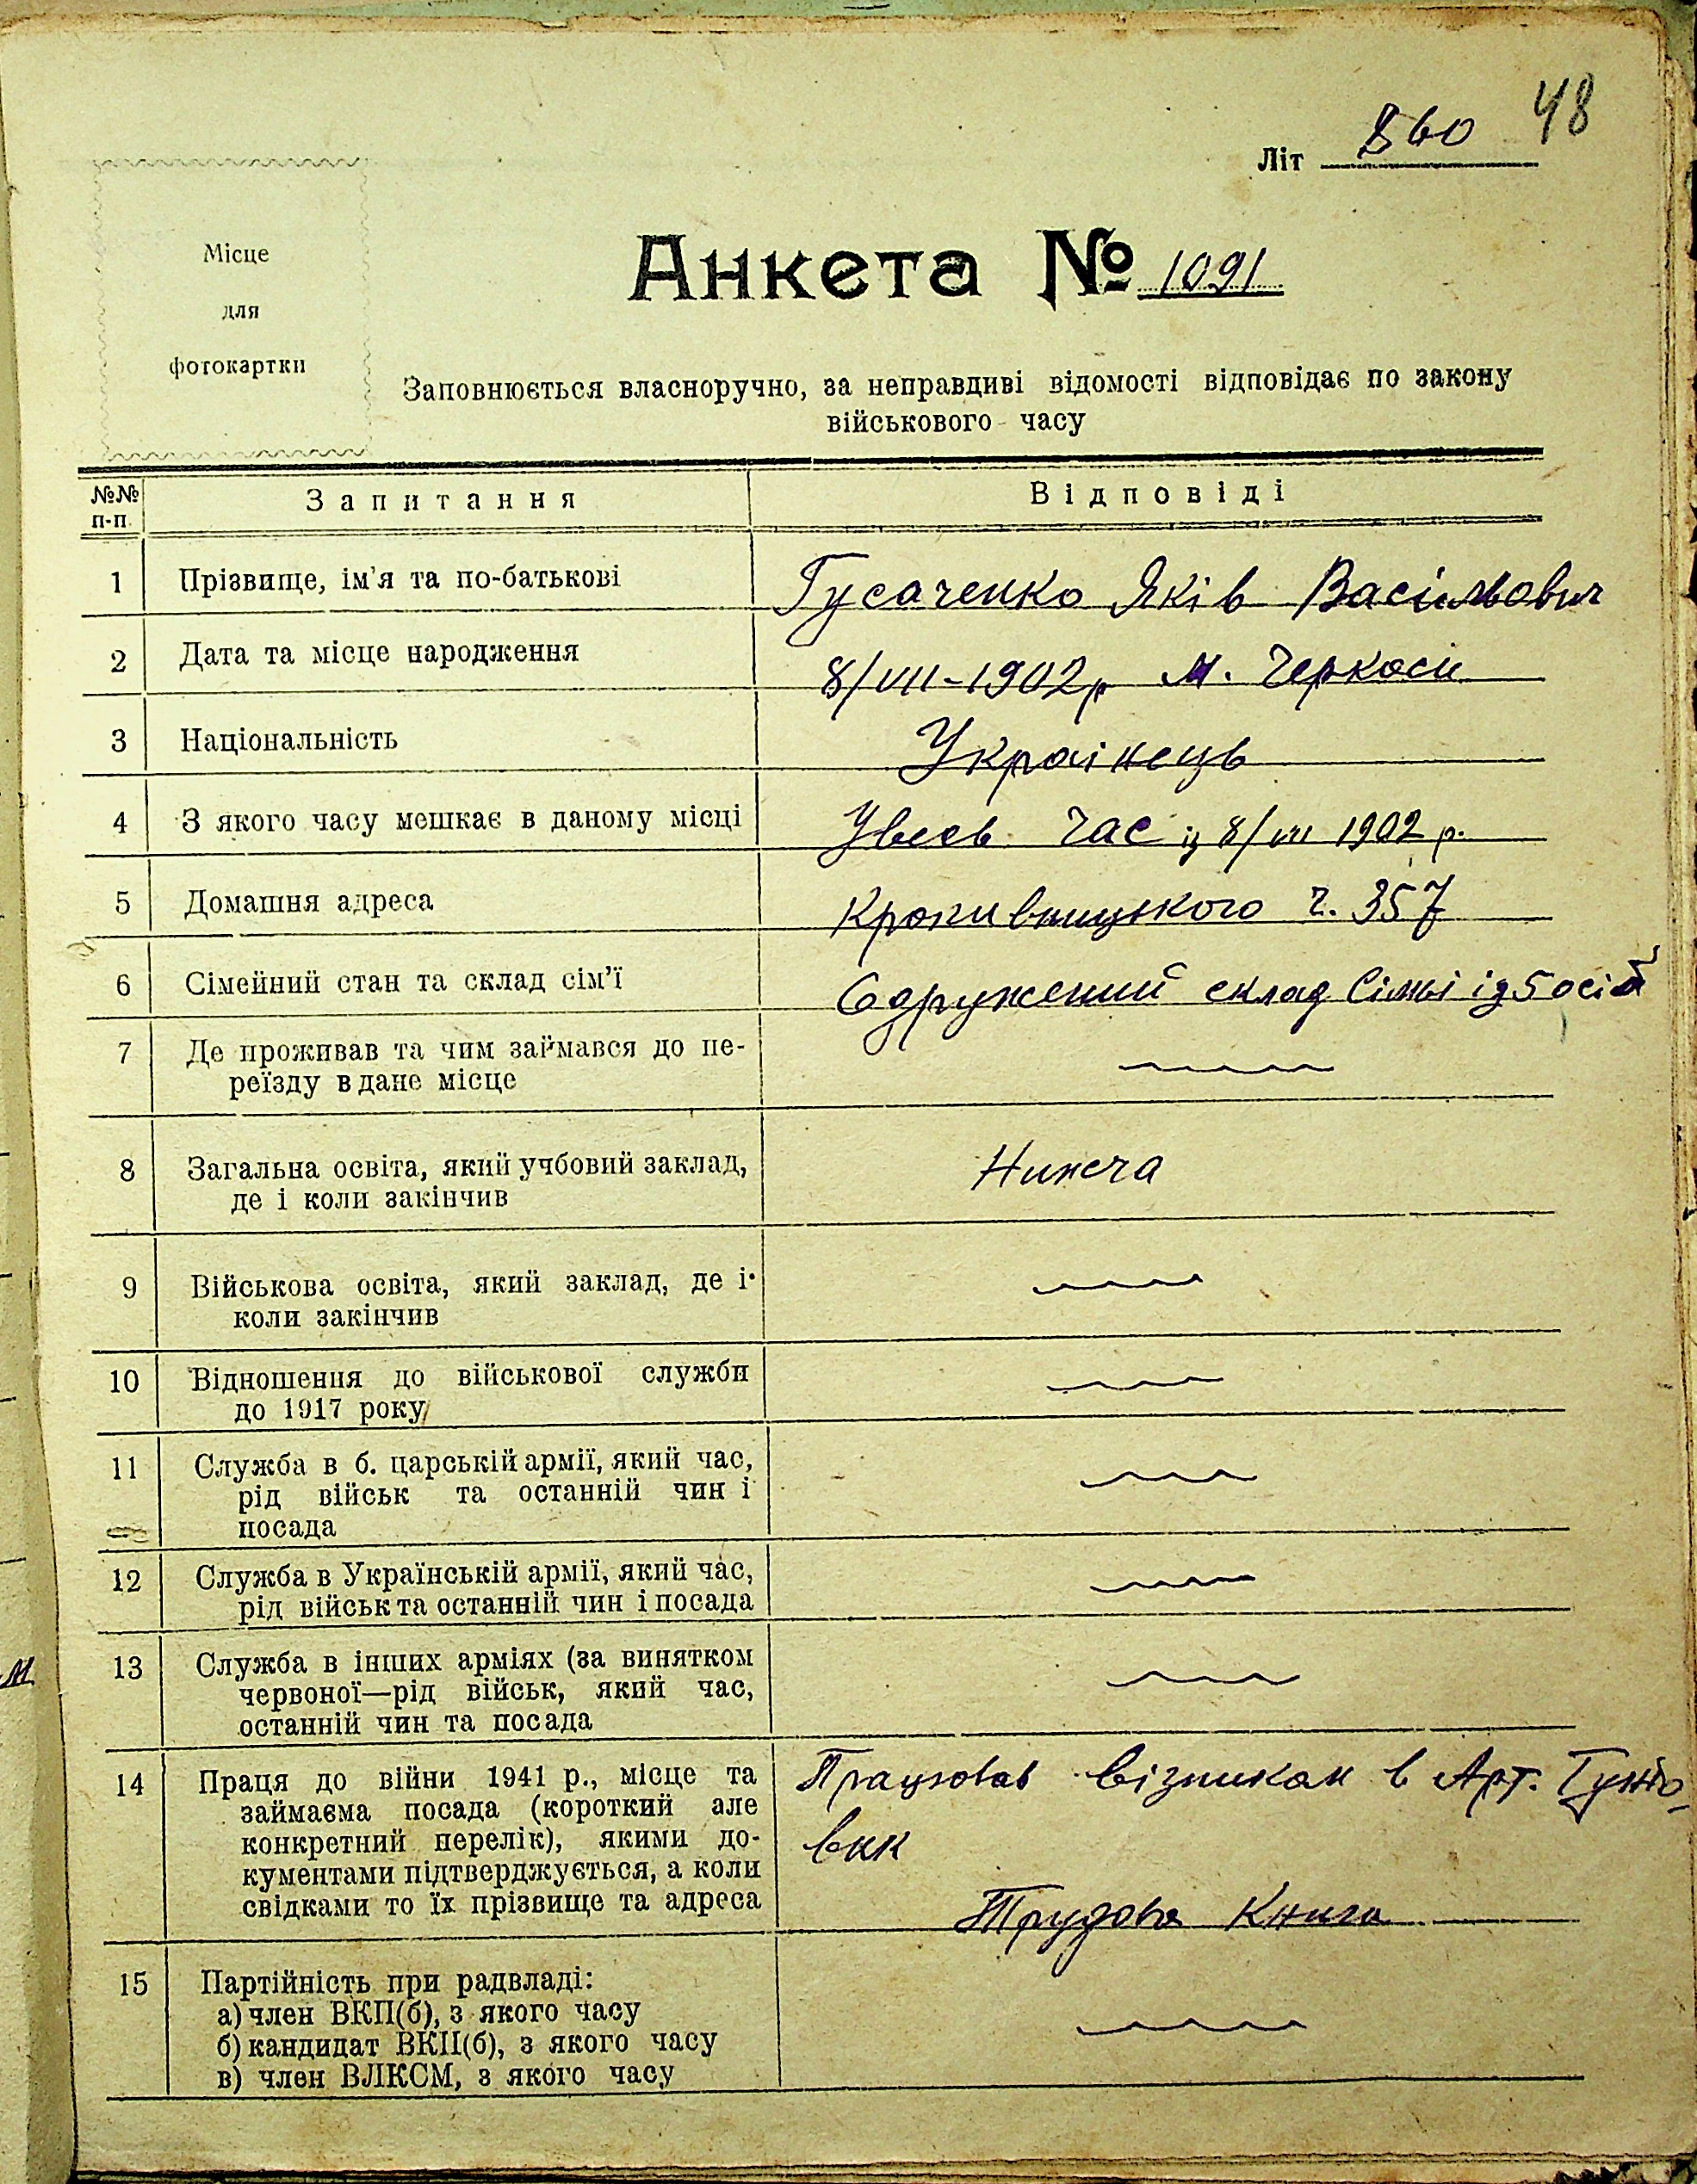 48
Літ 860
Місце
для
фотокартки
Анкета № 1091
Заповнюється власноручно, за неправдиві відомості відповідає по закону
військового часу
№№ п-п. Запитання Відповіді
1 Прізвище, ім'я та по-батькові Гусаченко Яків Васільович
2 Дата та місце народження 8/VII-1902р М. Черкаси
3 Національність Украінець
4 З якого часу мешкає в даному місці Увесь час із 8/VII 1902 р.
5 Домашня адреса Кропивницького ч. 357
6 Сімейний стан та склад сім'ї Одружений склад Сімьі із 5 осіб
7 Де проживав та чим займався до пе-
реїзду в дане місце
8 Загальна освіта, який учбовий заклад, Нижча
де і коли закінчив
9 Військова освіта, який заклад, де і
коли закінчив
10 Відношення до військової служби
до 1917 року
11 Служба в б. царській армії, який час,
рід військ та останній чин і
посада
12 Служба в Українській армії, який час,
рід військ та останній чин і посада
13 Служба в інших арміях (за винятком
червоної—рід військ, який час,
останній чин та посада
14 Праця до війни 1941 р., місце та Працював візником в Арт. Гужо-
займаєма посада (короткий але
конкретний перелік), якими до- вик
кументами підтверджується, а коли
свідками то їх прізвище та адреса Трудова Книга
15 Партійність при радвладі:
а) член ВКП(б), з якого часу
б) кандидат ВКП(б), з якого часу
в) член ВЛКСМ, з якого часу